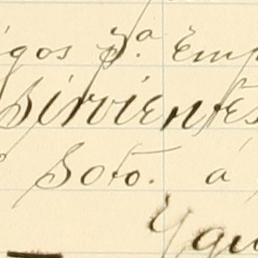 igos 3.ª Emp
Sirvientes
Soto. á
Ygu